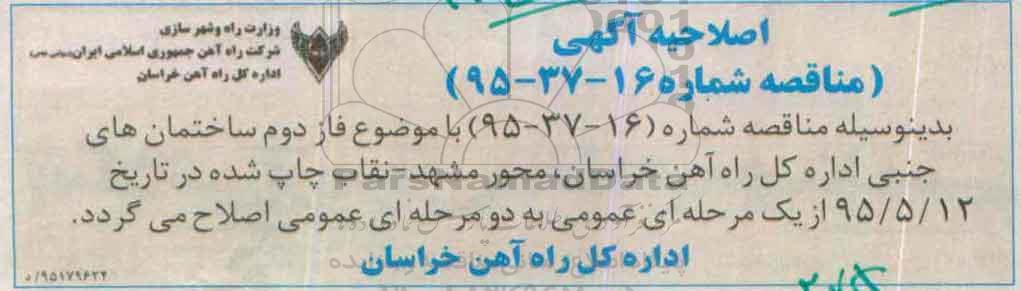 وزارت راه وشهر سازی
شرکت راه آهن جمهوری اسلامی ایران
اداره کل راه آهن خراسان
اصلاحیه آگهی
(مناقصه شماره ۱۶-۳۷-۹۵)
بدینوسیله مناقصه شماره (۱۶-۳۷-۹۵) با موضوع فاز دوم ساختمان های
جنبی اداره کل راه آهن خراسان، محور مشهد-نقاب چاپ شده در تاریخ
۹۵/۵/۱۲ از یک مرحله ای عمومی به دو مرحله ای عمومی اصلاح می گردد.
اداره کل راه آهن خراسان
۹۵۱۷۹۶۲۴/د
ParsNamadData